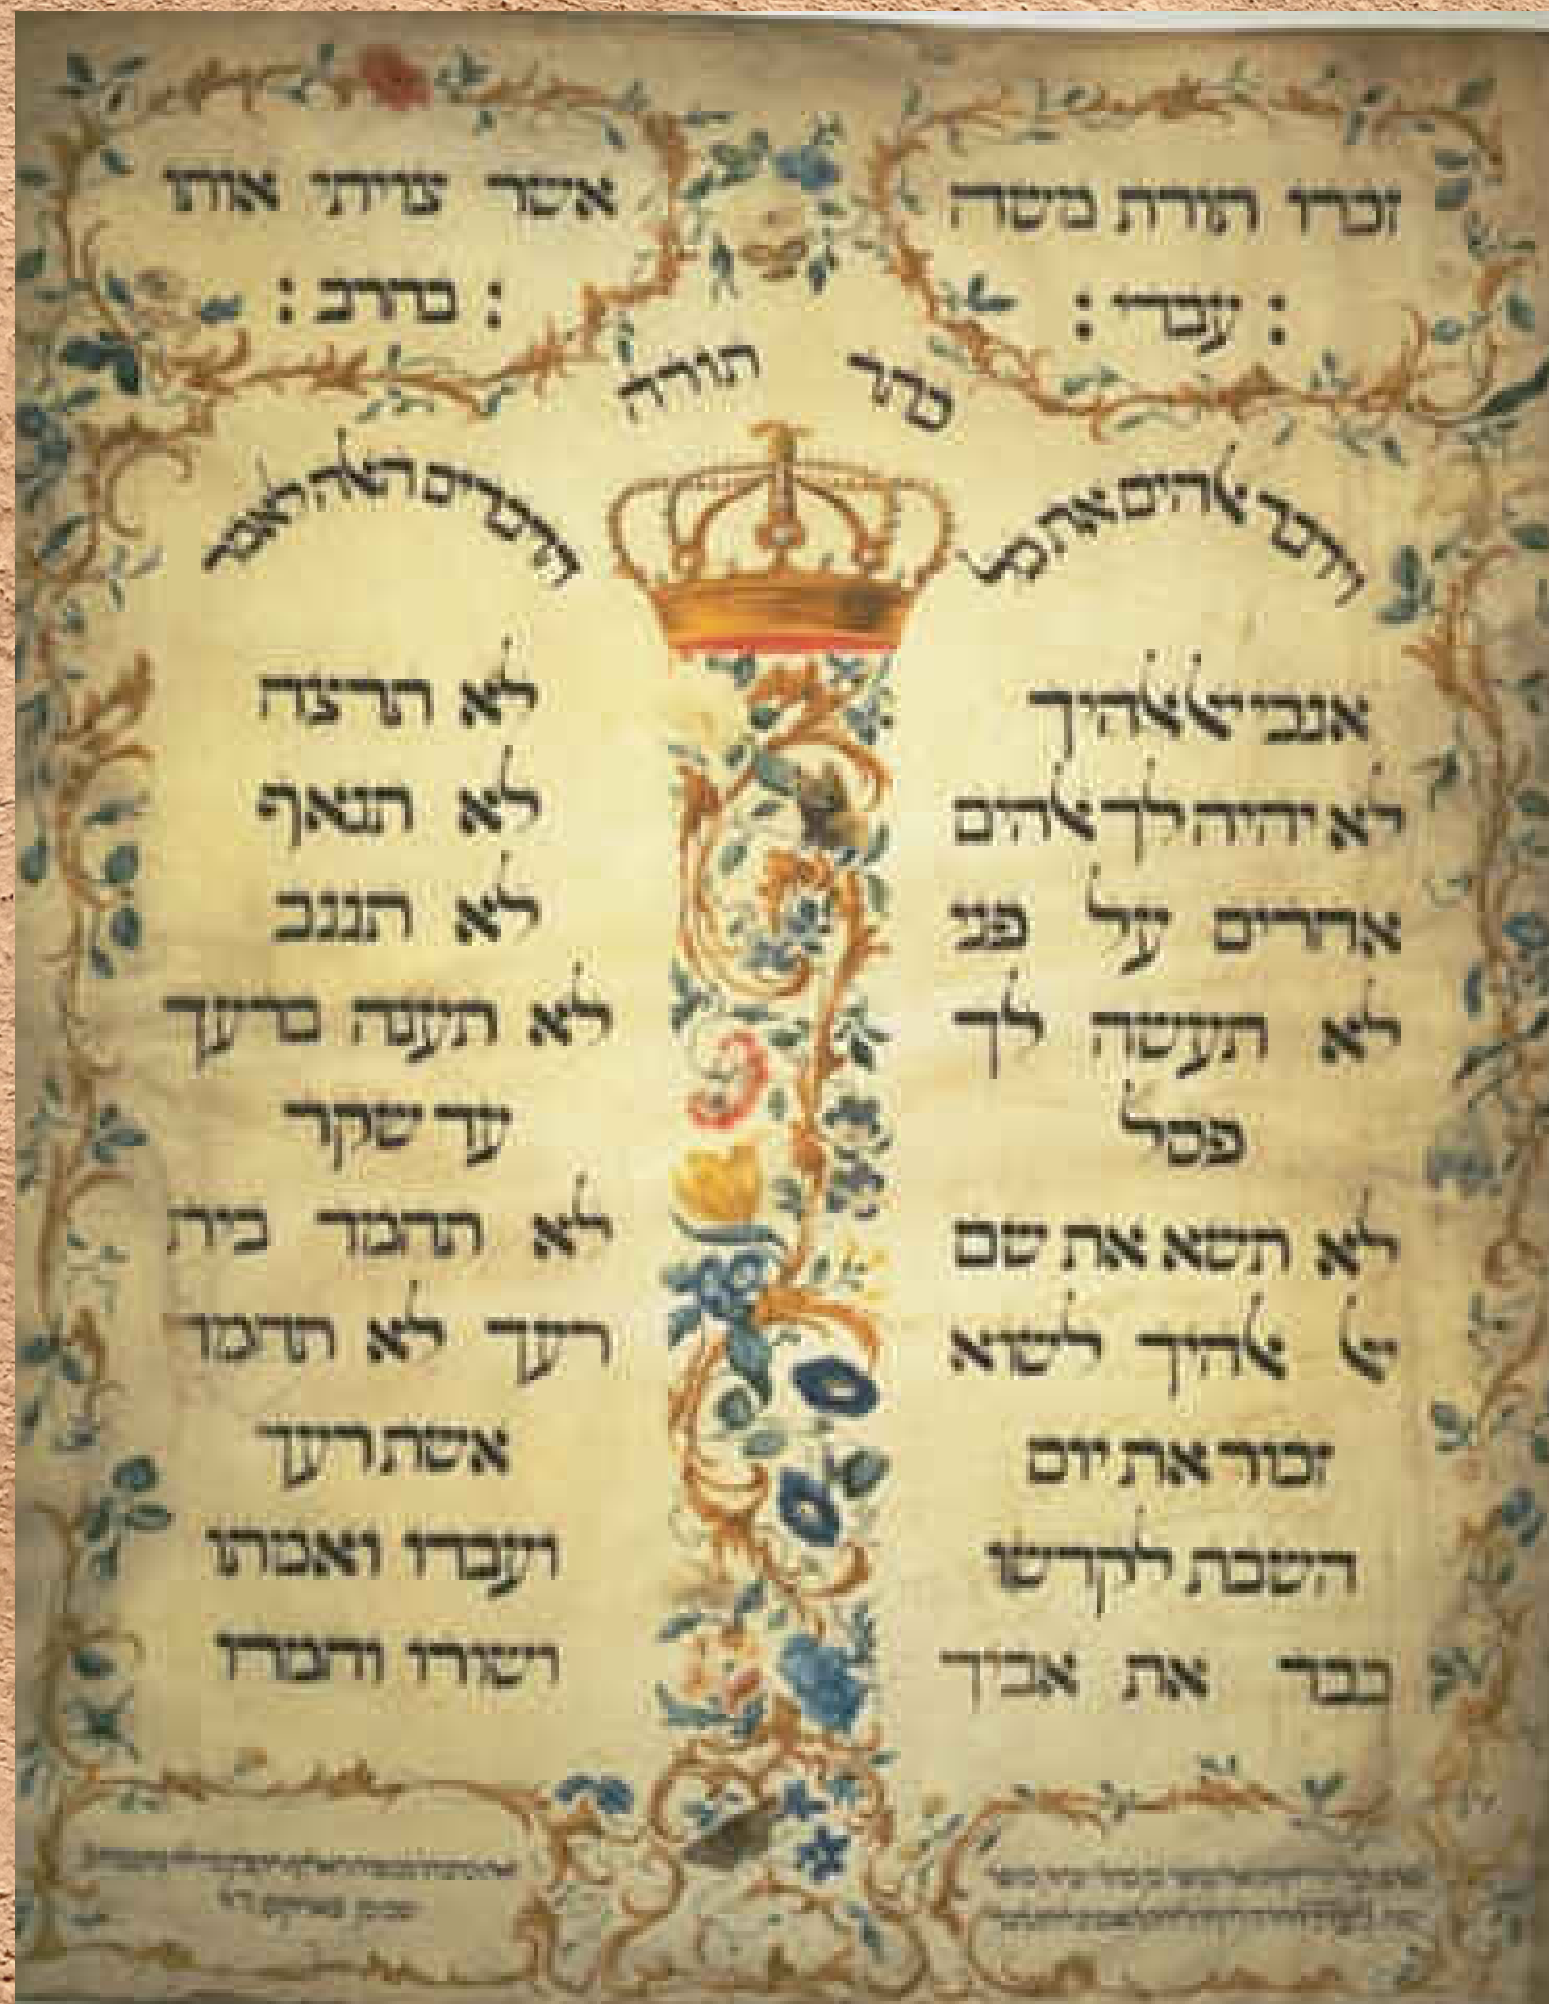 זכרו תורת משה
: עבדי :
אשר צויתי אותו
: בחרב :
כתר תורה
וידבר אלהים את כל
הדברים האלה לאמר
אנכי אלהיך
לא יהיה לך אלהים
אחרים על פני
לא תעשה לך
פסל
לא תשא את שם
אלהיך לשוא
זכור את יום
השבת לקדשו
כבד את אביך
לא תרצח
לא תנאף
לא תגנב
לא תענה ברעך
עד שקר
לא תחמד בית
רעך לא תחמד
אשת רעך
ועבדו ואמתו
ושורו וחמרו